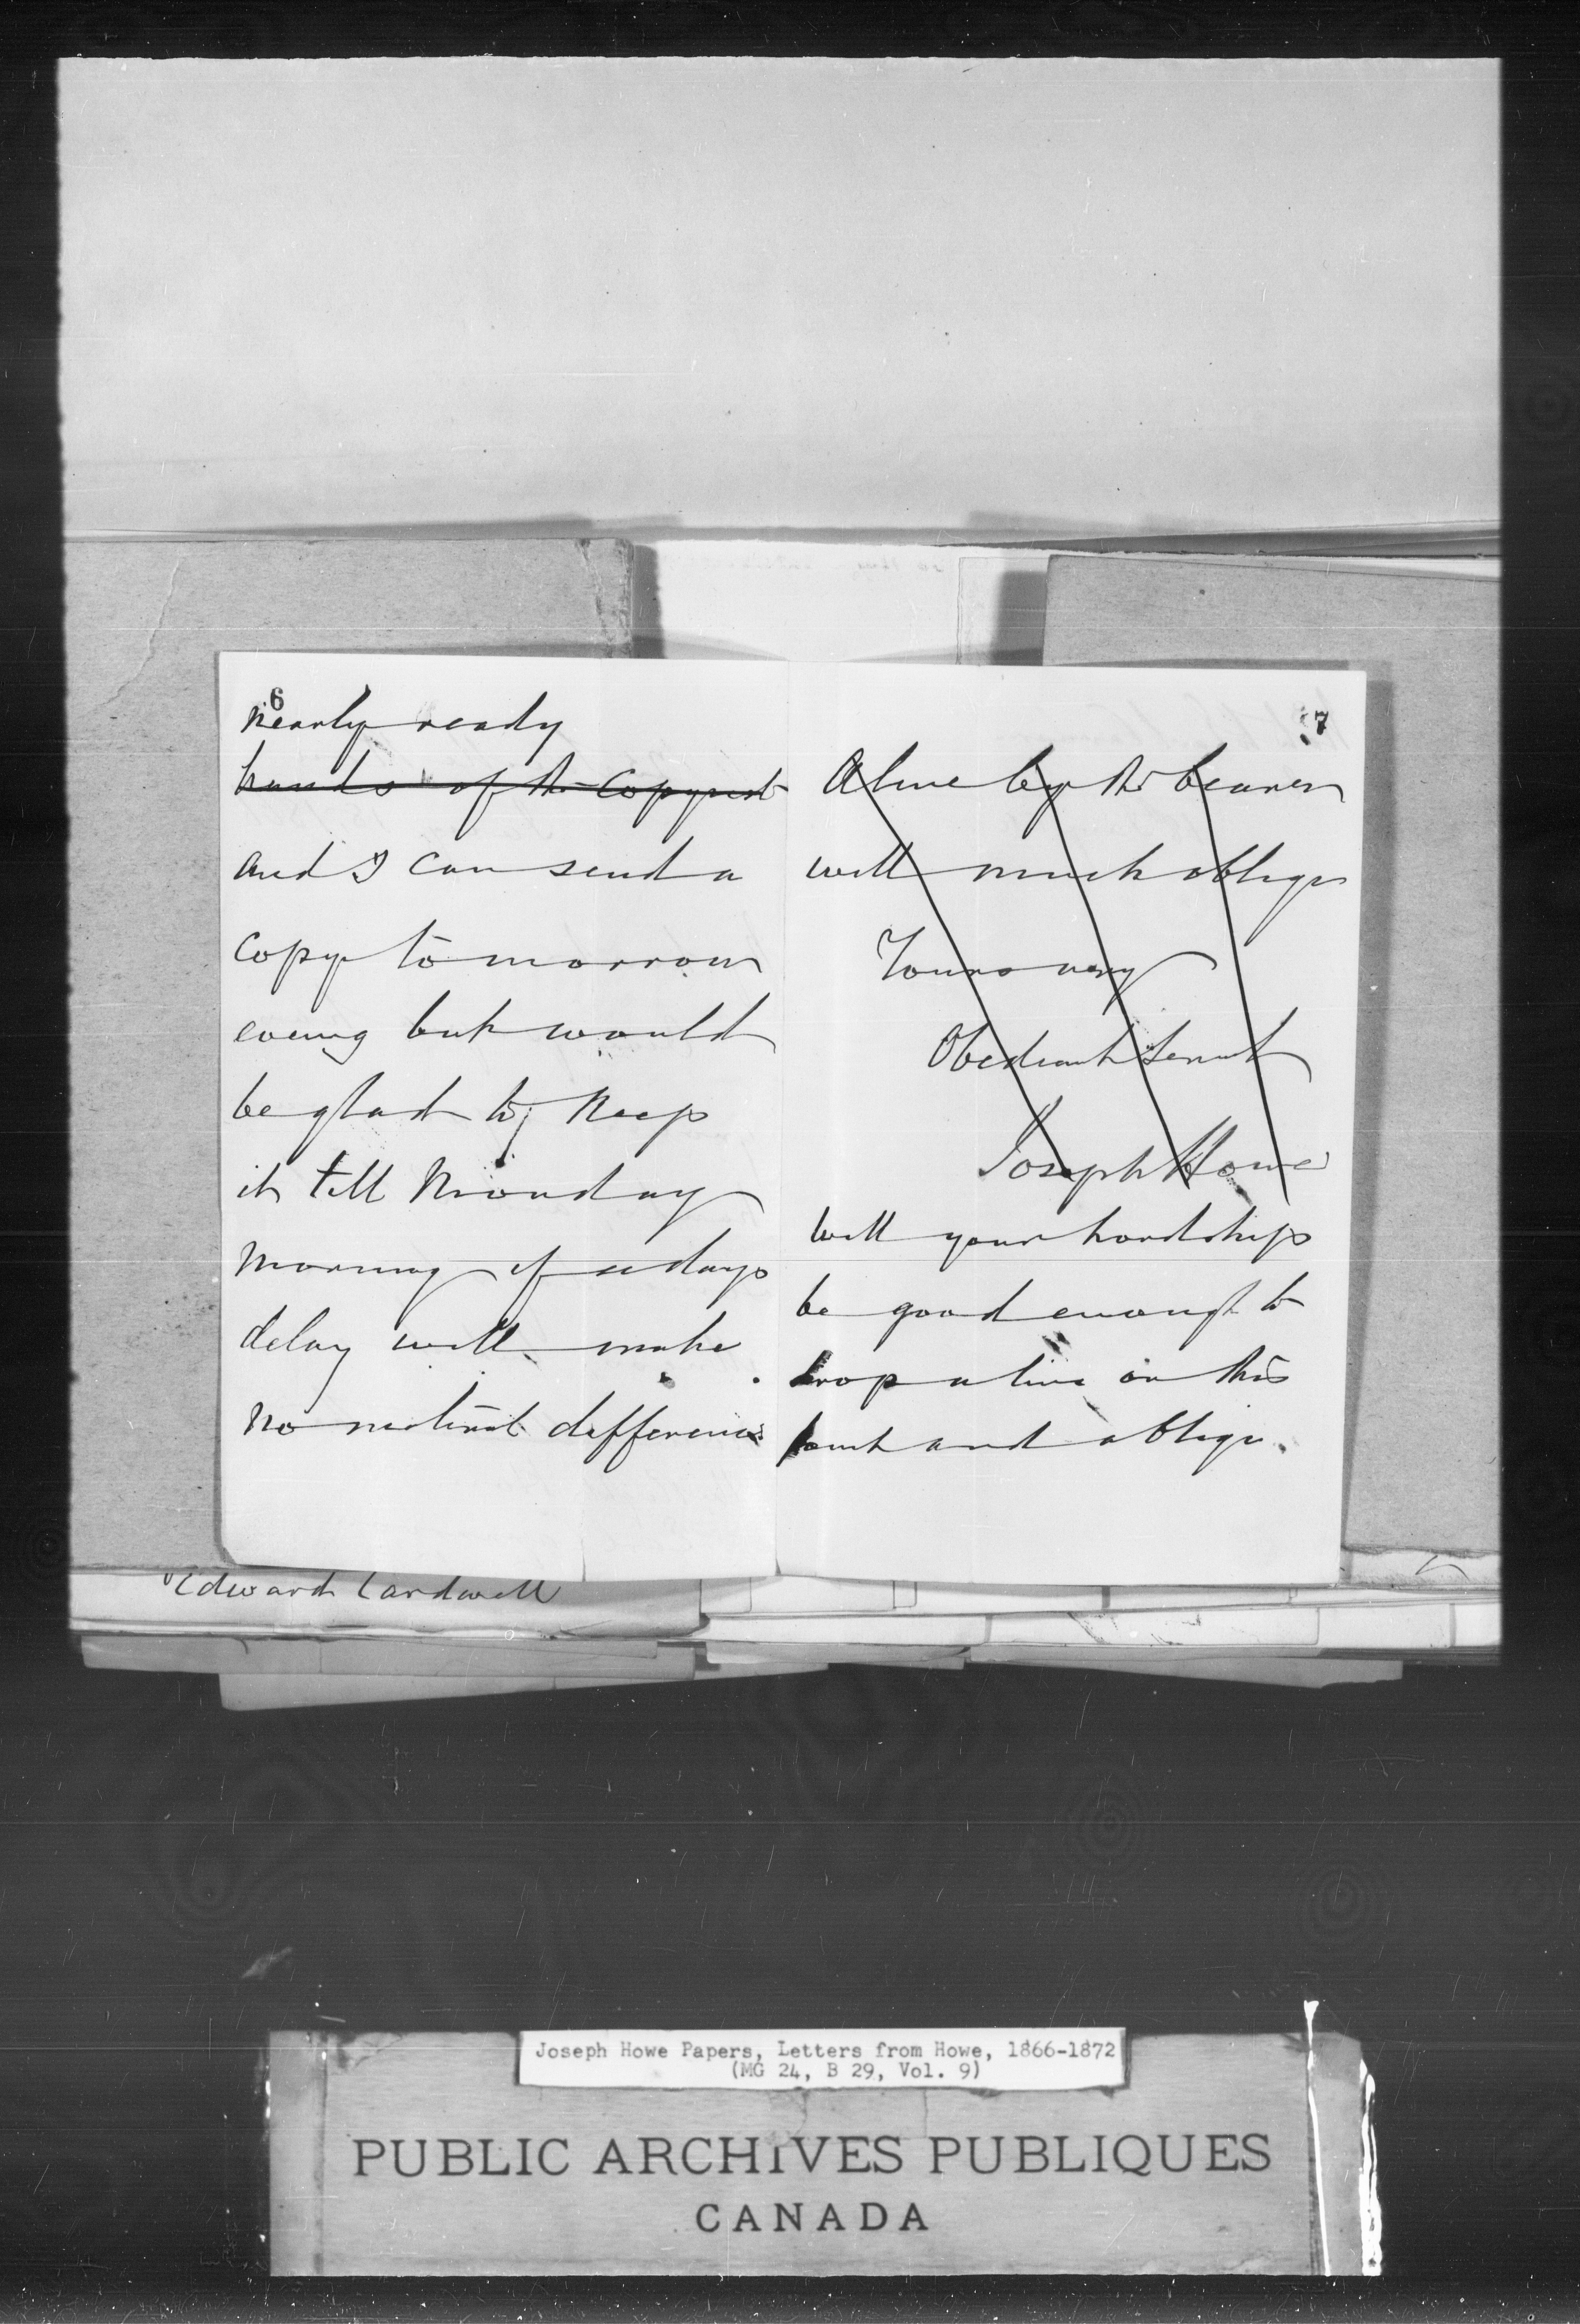 6
nearly ready
hands of the Copyist
and I can send a
copy to morrow
evening but would
be glad to keep
it till Monday
morning if a days
delay will make
no material difference.
7
A line by the bearer
will much oblige
Yours very
Obedient Servt
Joseph Howe
Will your Lordship
be good enough to
drop a line on this
point and oblige.
Edward Cardwell
Joseph Howe Papers, Letters from Howe, 1866-1872
(MG 24, B 29, Vol. 9)
PUBLIC ARCHIVES PUBLIQUES
CANADA